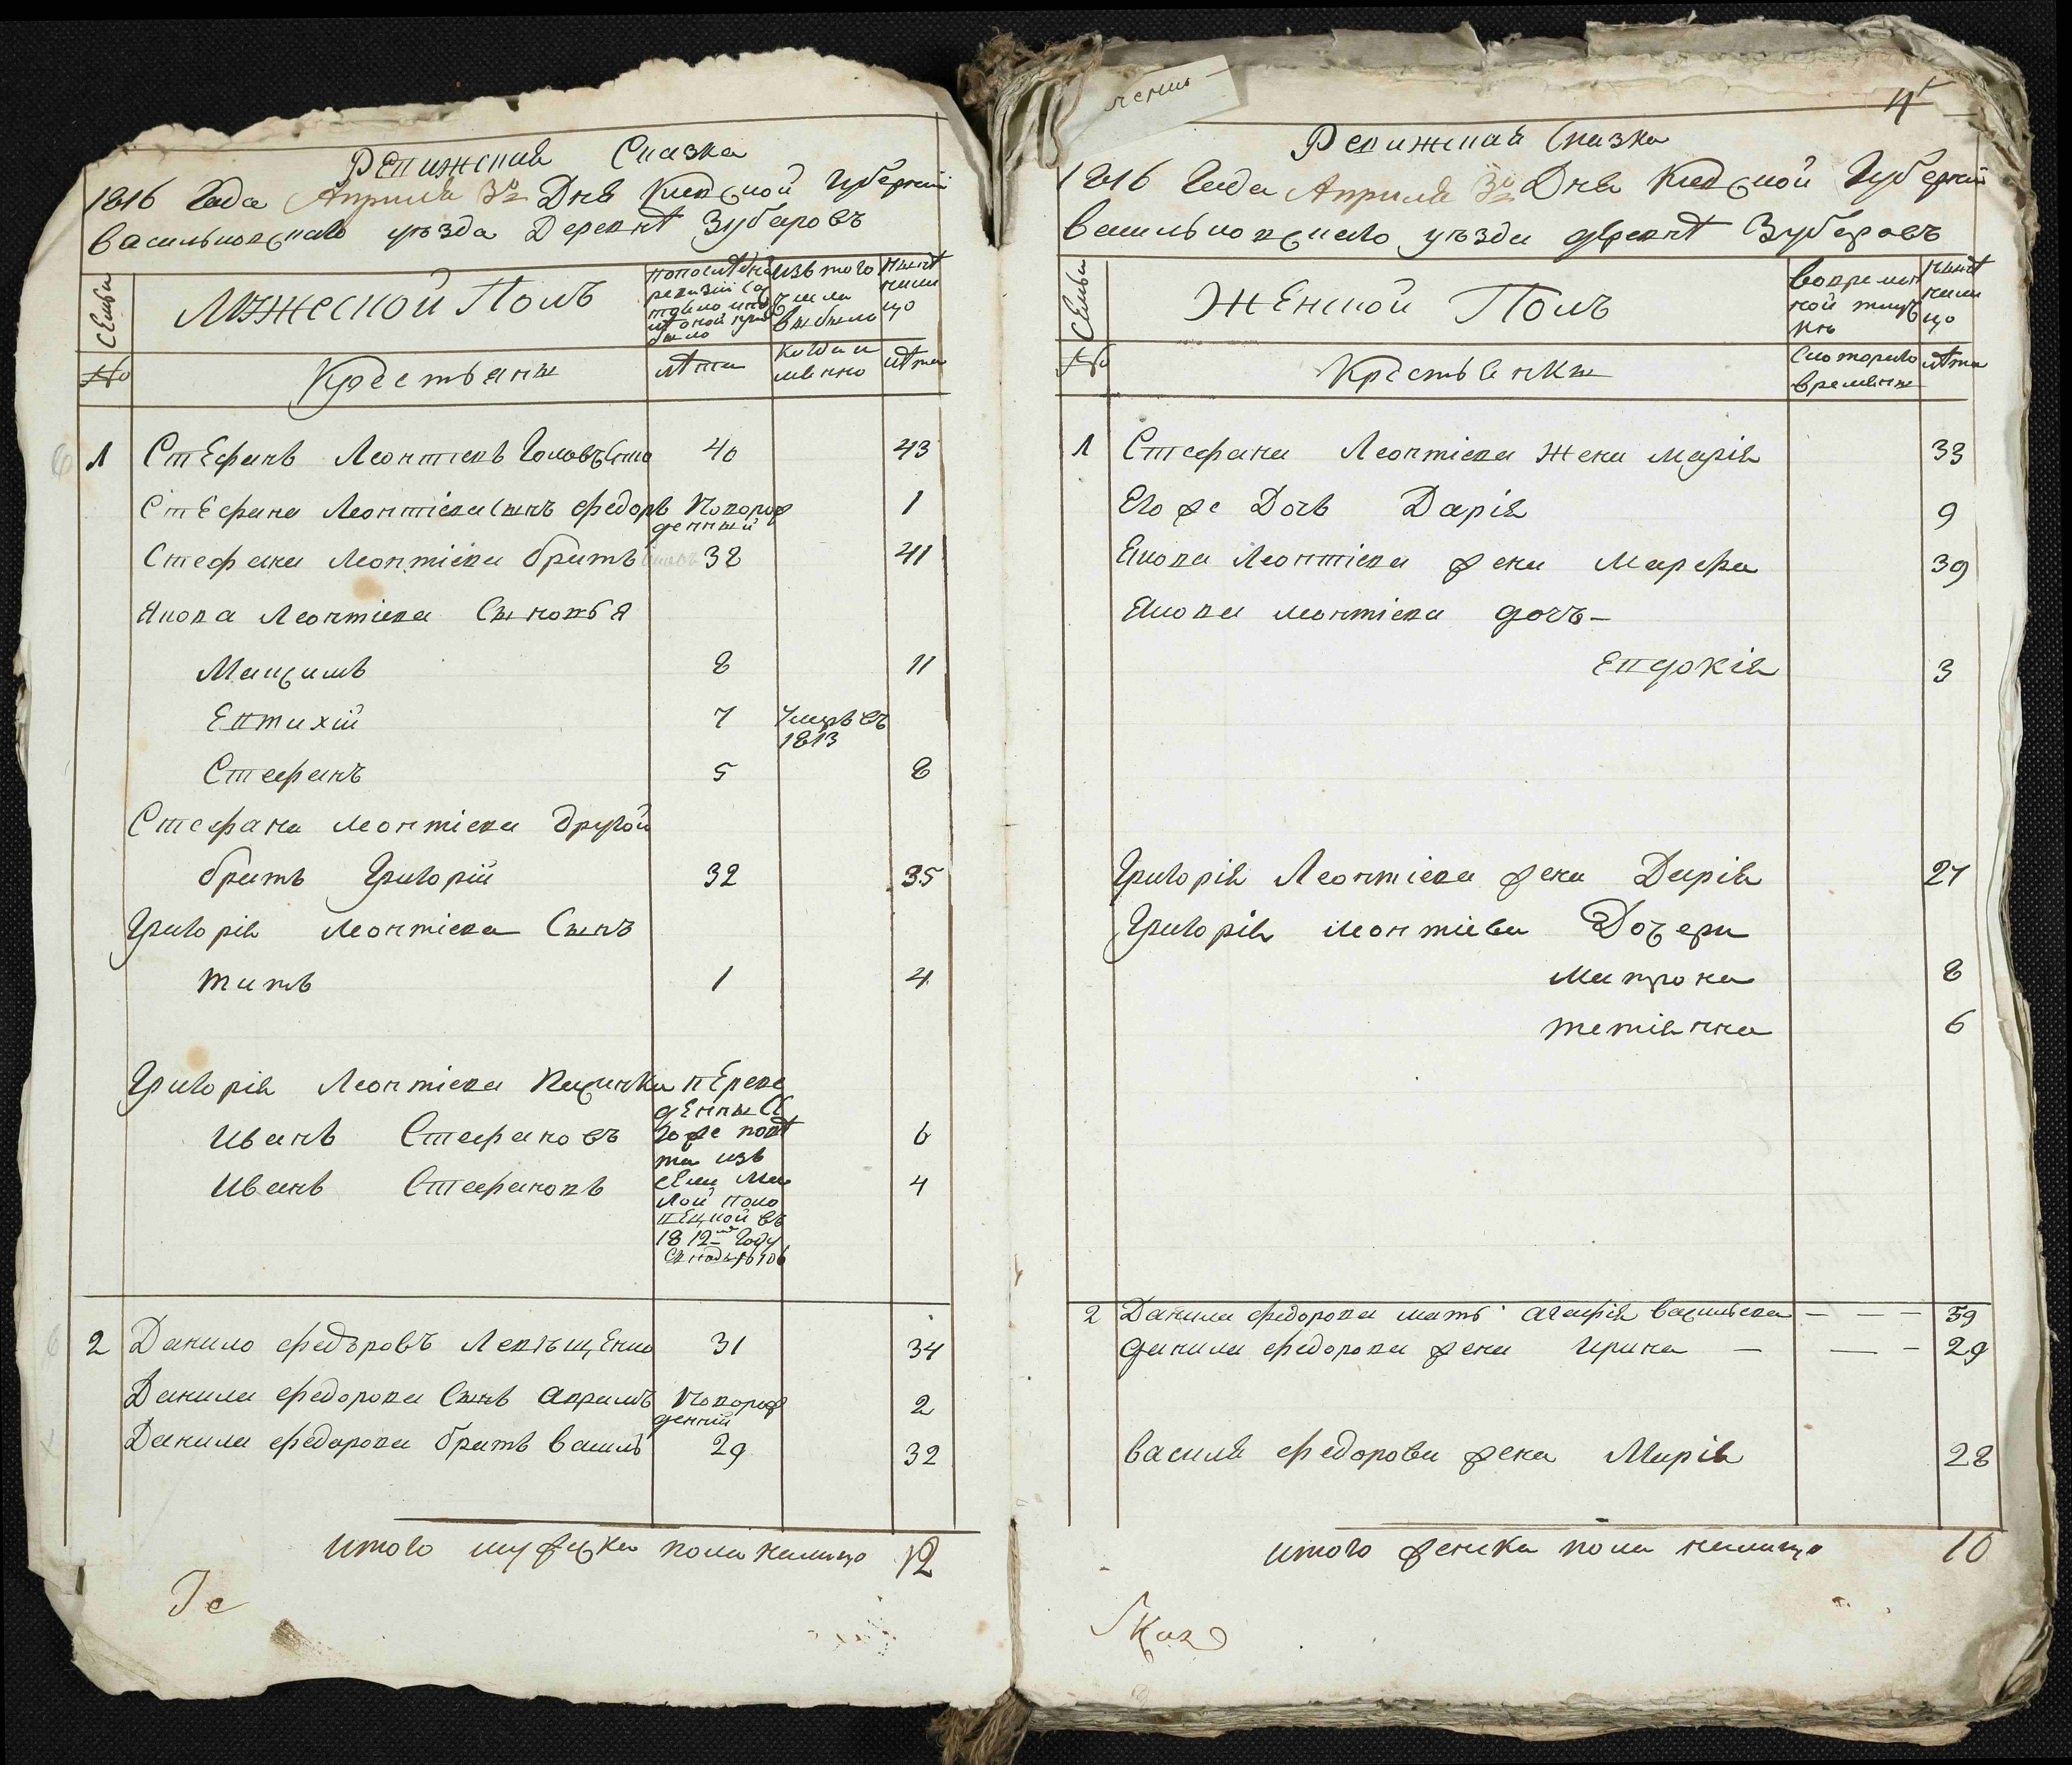 Ревижская Сказка
1816 Года Апреля 3го Дня Киевской Губернии
Васильковскаго уѣзда Деревнѣ Зубаровъ
Семьи
Мужеской Полъ
по последней ревизии состояло и после оной прибыло
изъ того числа выбыло
нынѣ налицо
№
Крестьяне
лѣта
когда именно
лѣта
1 Стефанъ Леонтіевъ 40 43
Стефана Леонтіева сынъ Федоръ новорожденный 1
Стефана Леонтіева братъ 38 41
Якова Леонтіева Сыновья
Максимъ 8 11
Евтихій 7 умръ въ 1813
Стефанъ 5 8
Стефана Леонтіева другой
братъ Григорій 32 35
Григорія Леонтіева Сынъ
Титъ 1 4
Григорія Леонтіева пасинки
Иванъ Стефановъ 6
Иванъ Стефановъ 4
переведенные сего же повѣта изъ села Малой Половецкой въ 1812м Году
2 Данило Федоровъ 31 34
Данила Федорова Сынъ Аврамъ новорожденній 2
Данила Федорова братъ Василь 29 32
итого мужеска пола налицо 12
4
Ревижская Сказка
1816 Года Апреля 3го Дня Киевской Губернии
Васильковскаго уѣзда деревнѣ Зубаровъ
Семьи
Женской Полъ
во временной отлучкѣ
нынѣ налицо
№
Крестьянки
с котораго времени
лѣта
1 Стефана Леонтіева жена Марія 33
Его же Дочь Дарія 9
Якова Леонтіева жена Марфа 39
Якова Леонтіева дочь –
Евдокія 3
Григорія Леонтіева жена Дарія 27
Григорія Леонтіева Дочери
Матрона 8
Тетіянна 6
2 Данила Федорова мать Агафія Васильева – – – 59
Данила Федорова жена Ирина – – – 29
Василя Федорова жена Марія 28
итого женска пола налицо 10